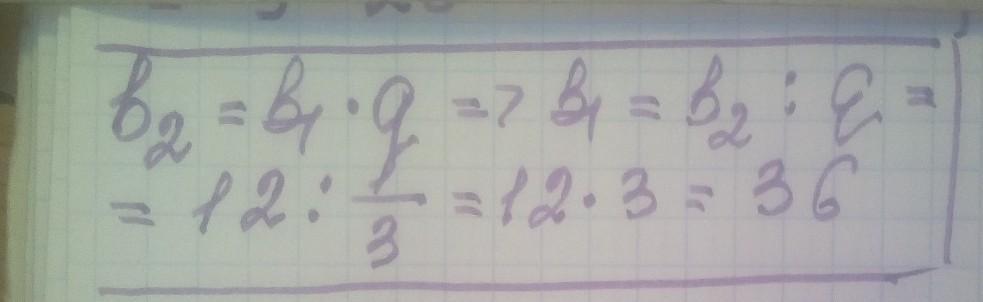 b₂ = b₁ · q => b₁ = b₂ : q =
= 12 : 1/3 = 12 · 3 = 36